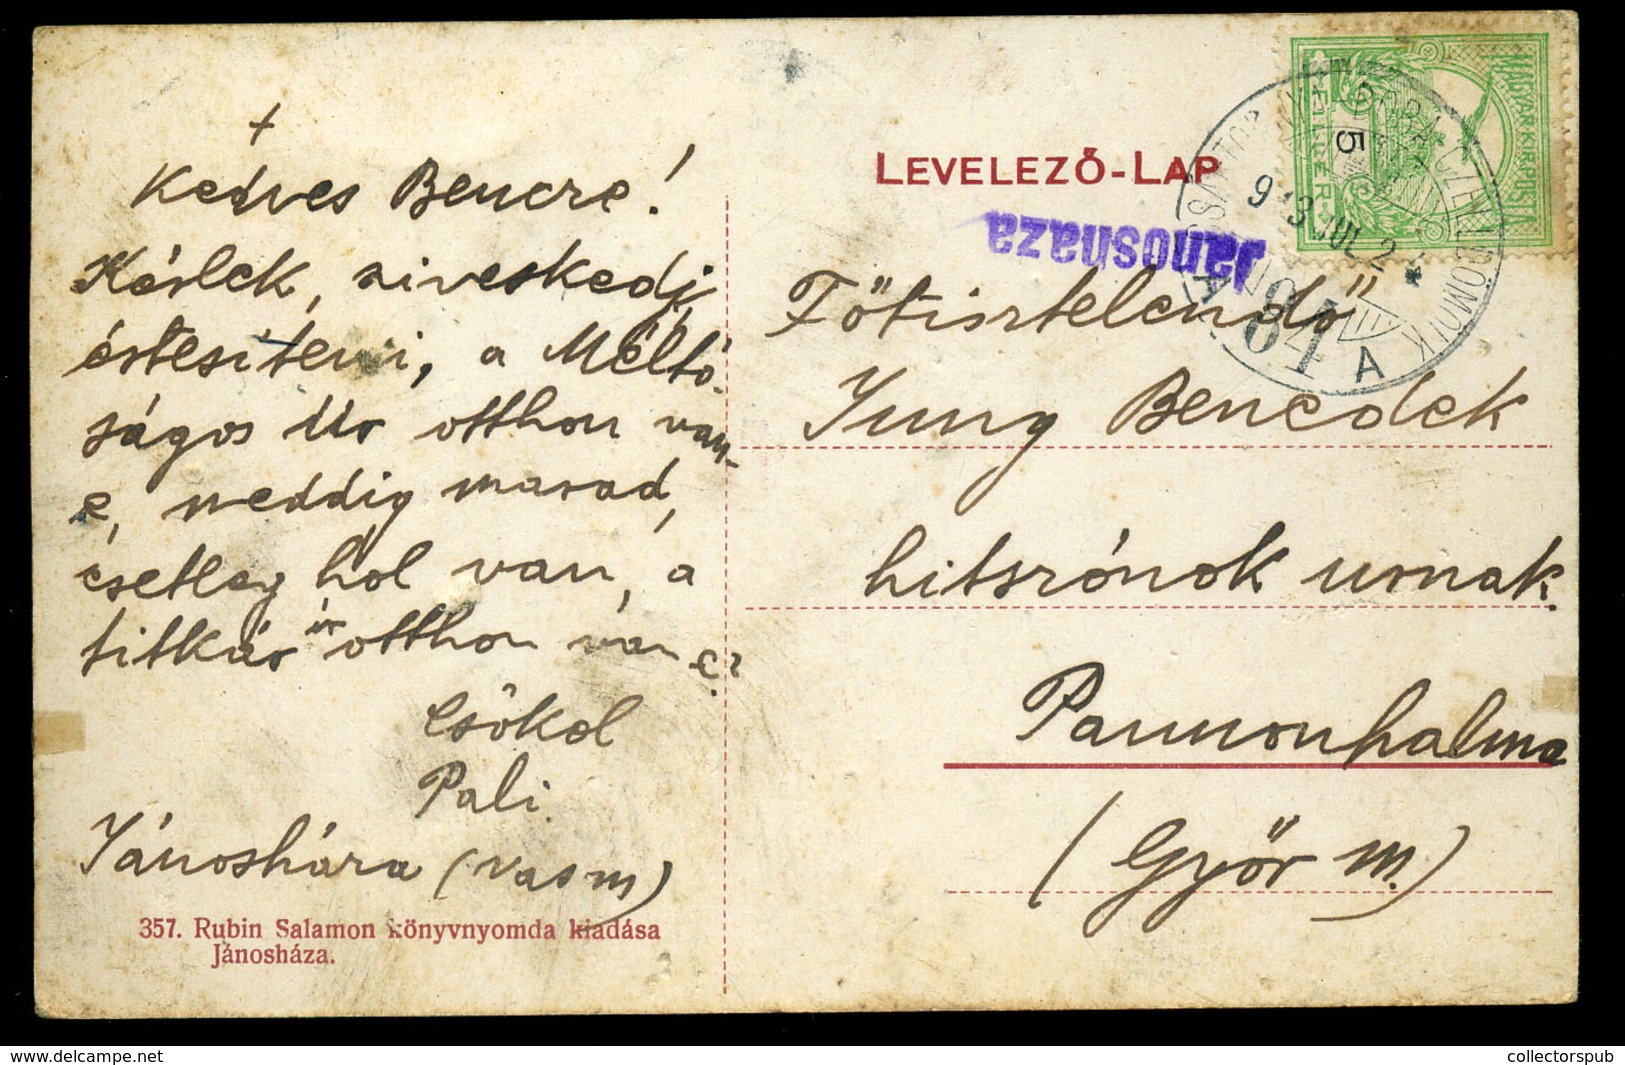 +
Kedves Bencze!
Kérlek, sziveskedj
értesíteni, a Méltó-
ságos Ur otthon van-
e, meddig marad,
esetleg hol van, a
titkár úr otthon van e?
Csókol
Pali.
Jánosháza (Vas m)
357. Rubin Salamon könyvnyomda kiadása
Jánosháza.
LEVELEZŐ-LAP
Jánosháza
Főtisztelendő
Jung Benedek
hitszónok urnak.
Pannonhalma
(Győr m.)
MAGYAR KIR. POSTA
5
FILLÉR
CZELLDÖMÖLK
913 JUL 2
84
A
delcampe.net
collectorspub